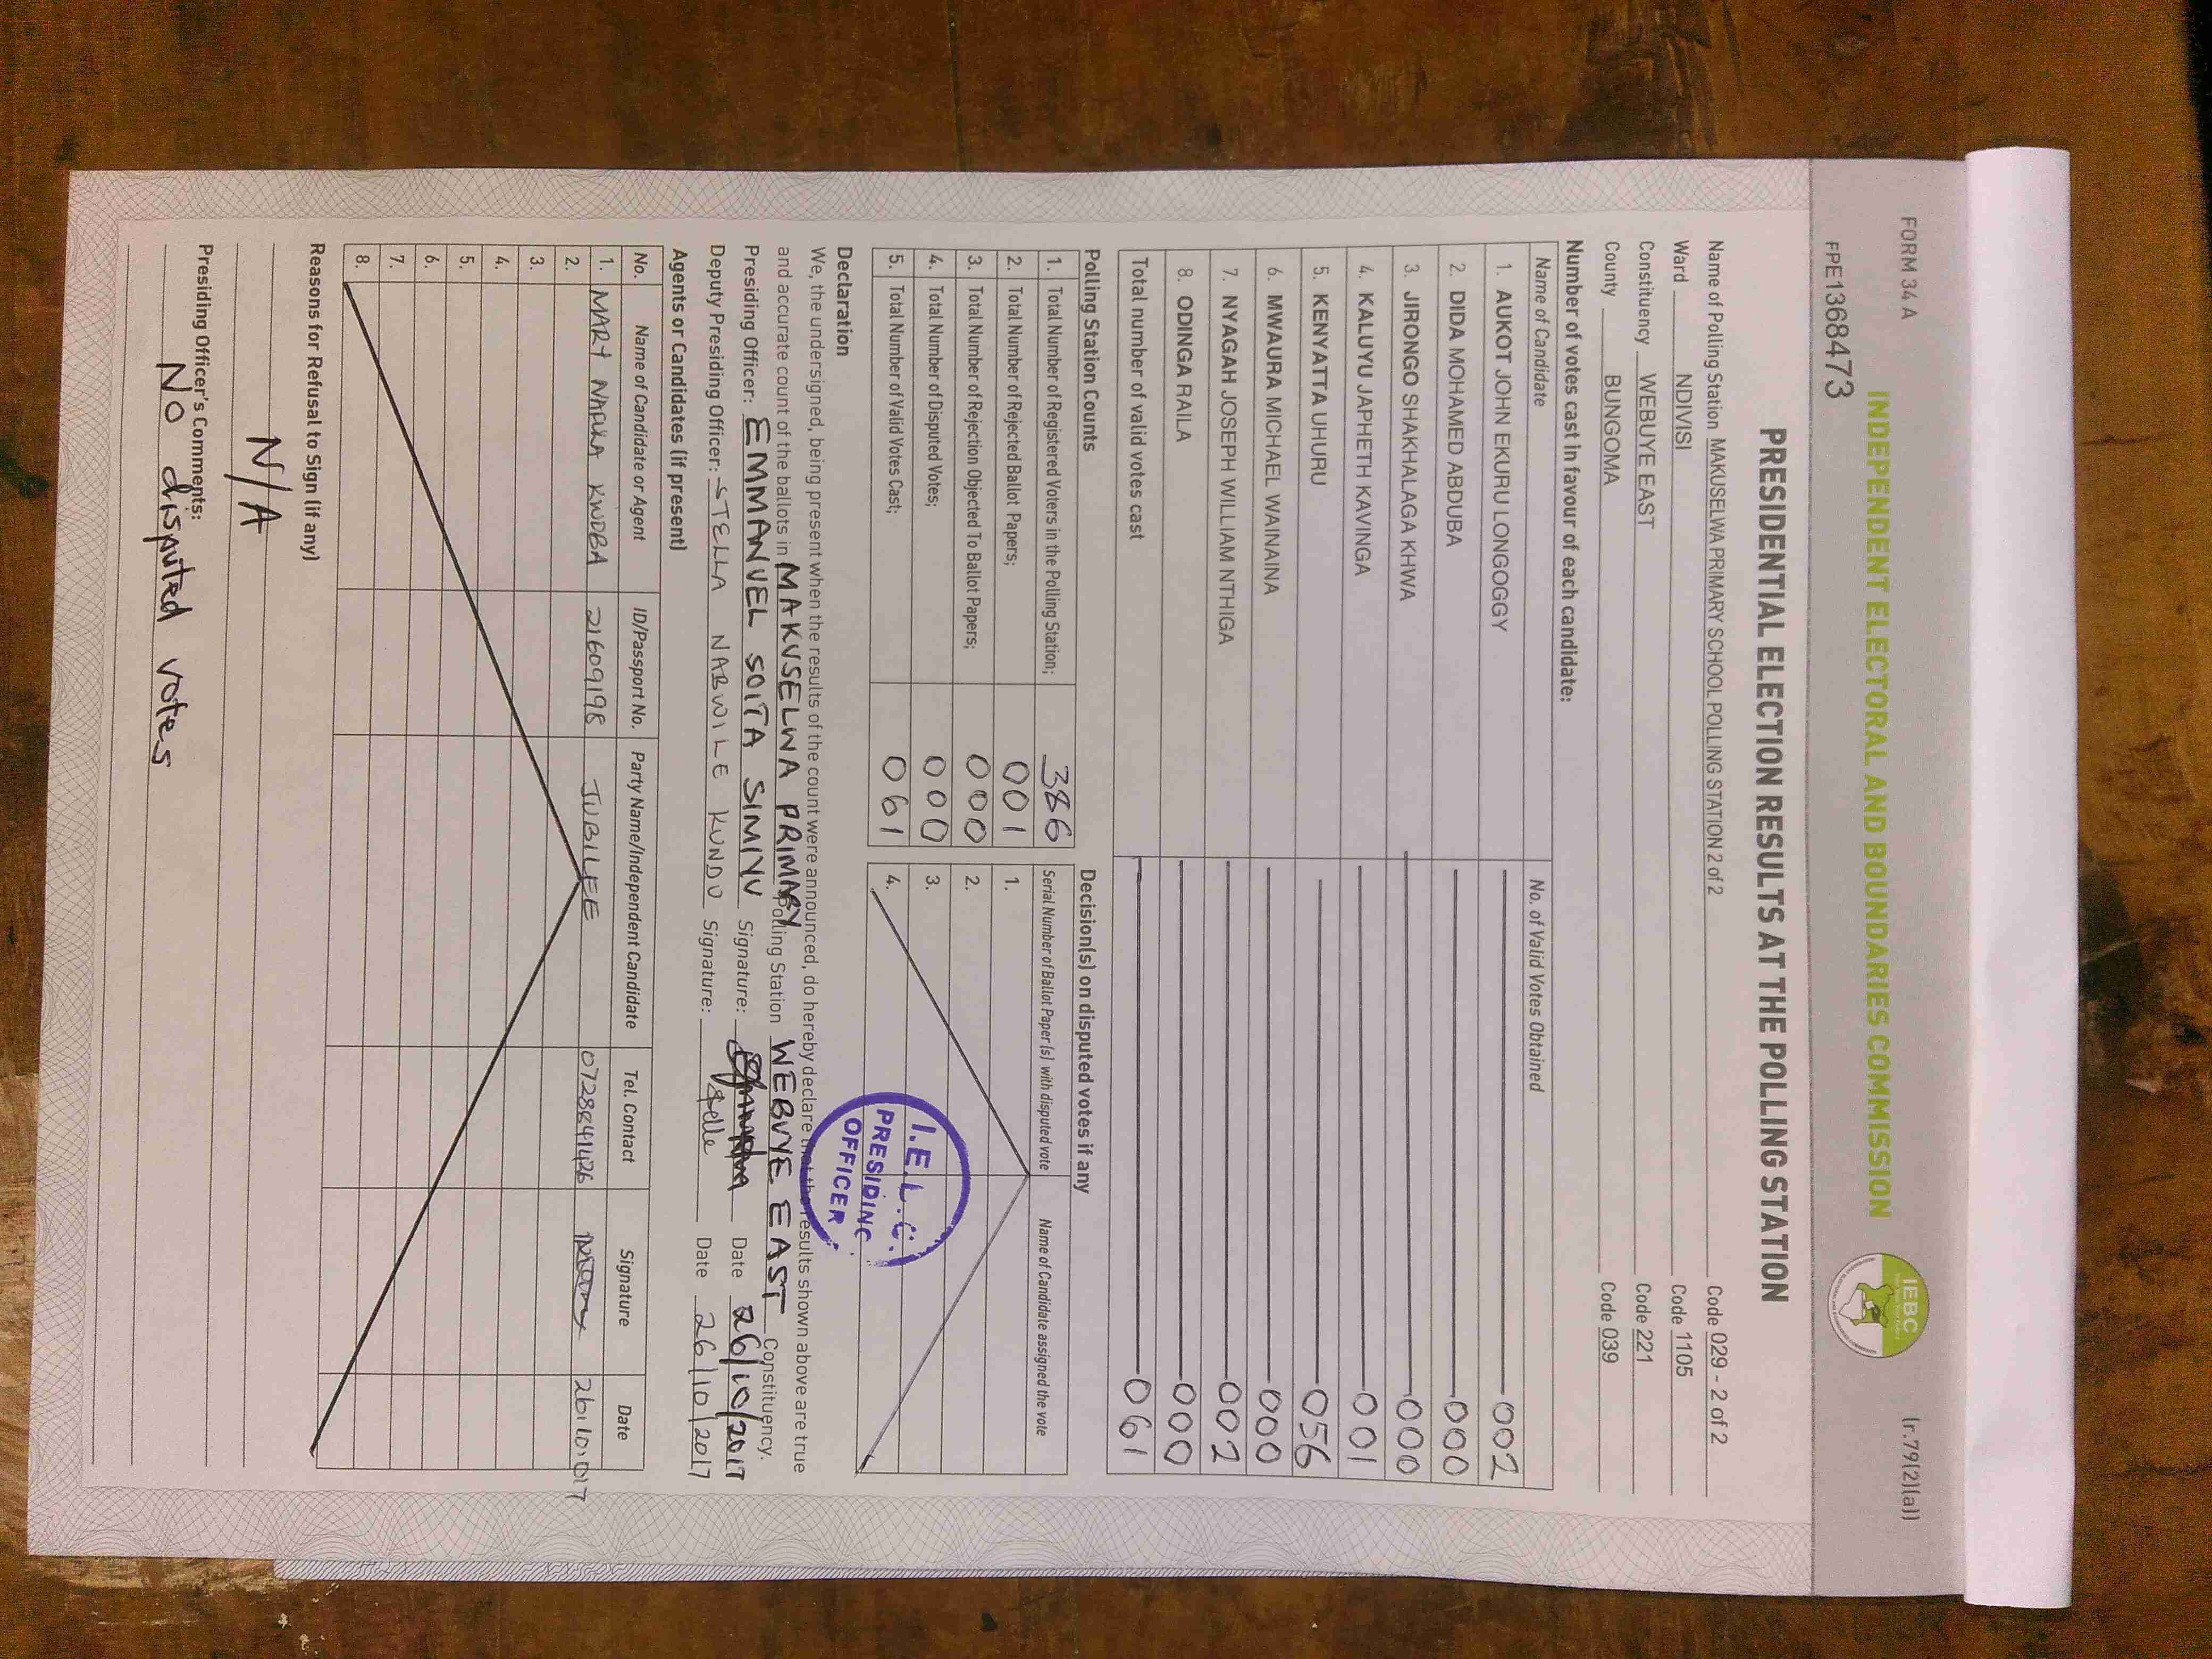 FORM 34 A
(r.79(2)(a))
INDEPENDENT ELECTORAL AND BOUNDARIES COMMISSION
IEBC
FPE1368473
PRESIDENTIAL ELECTION RESULTS AT THE POLLING STATION
Name of Polling Station MAKUSELWA PRIMARY SCHOOL POLLING STATION 2 of 2 Code 029 - 2 of 2
Ward NDIVISI Code 1105
Constituency WEBUYE EAST Code 221
County BUNGOMA Code 039
Number of votes cast in favour of each candidate:
Name of Candidate No. of Valid Votes Obtained
1. AUKOT JOHN EKURU LONGOGGY 002
2. DIDA MOHAMED ABDUBA 000
3. JIRONGO SHAKHALAGA KHWA 000
4. KALUYU JAPHETH KAVINGA 001
5. KENYATTA UHURU 056
6. MWAURA MICHAEL WAINAINA 000
7. NYAGAH JOSEPH WILLIAM NTHIGA 002
8. ODINGA RAILA 000
Total number of valid votes cast 061
Polling Station Counts
1. Total Number of Registered Voters in the Polling Station; 386
2. Total Number of Rejected Ballot Papers; 001
3. Total Number of Rejection Objected To Ballot Papers; 000
4. Total Number of Disputed Votes; 000
5. Total Number of Valid Votes Cast; 061
Decision(s) on disputed votes if any
Serial Number of Ballot Paper (s) with disputed vote Name of Candidate assigned the vote
1.
2.
3.
4.
I.E.L.C.
PRESIDING
OFFICER
Declaration
We, the undersigned, being present when the results of the count were announced, do hereby declare that the results shown above are true
and accurate count of the ballots in MAKUSELWA PRIMARY Polling Station WEBUYE EAST Constituency.
Presiding Officer: EMMANUEL SOITA SIMIYU Signature: Date 26/10/2017
Deputy Presiding Officer: STELLA NABWILE KUNDU Signature: Stelle Date 26/10/2017
Agents or Candidates (if present)
No. Name of Candidate or Agent ID/Passport No. Party Name/Independent Candidate Tel. Contact Signature Date
1. MARY 21609198 JUBILEE
2.
3.
4.
5.
6.
7.
8.
Reasons for Refusal to Sign (if any)
N/A
Presiding Officer's Comments:
No disputed votes